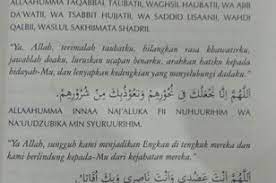 ALLAAHUMMA TAQABBAL TAUBATII, WAGHSIL HAUBATII, WA AJIB
DA'WATII, WA TSABBIT HUJJATII, WA SADDID LISAANII, WAHDI
QALBII, WASLUL SAKHIIMATA SHADRII.
"Ya Allah, terimalah taubatku, hilangkan rasa khawatirku,
jawablah doaku, luruskan ucapan benarku, arahkan hatiku kepada
hidayah-Mu, dan lenyapkan kedengkian yang menyelubungi dadaku."
اَللّٰهُمَّ إِنَّا نَجْعَلُكَ فِيْ نُحُوْرِهِمْ وَنَعُوْذُبِكَ مِنْ شُرُوْرِهِمْ.
ALLAHUMMA INNAA NAJ'ALUKA FII NUHUURIHIM WA
NA'UUDZUBIKA MIN SYURUURIHIM.
"Ya Allah, sungguh kami menjadikan Engkau di tengkuk mereka dan
kami berlindung kepada-Mu dari kejahatan mereka."
اَللّٰهُمَّ أَنْتَ عَضُدِيْ وَأَنْتَ نَاصِرِيْ وَبِكَ أُقَاتِلُ